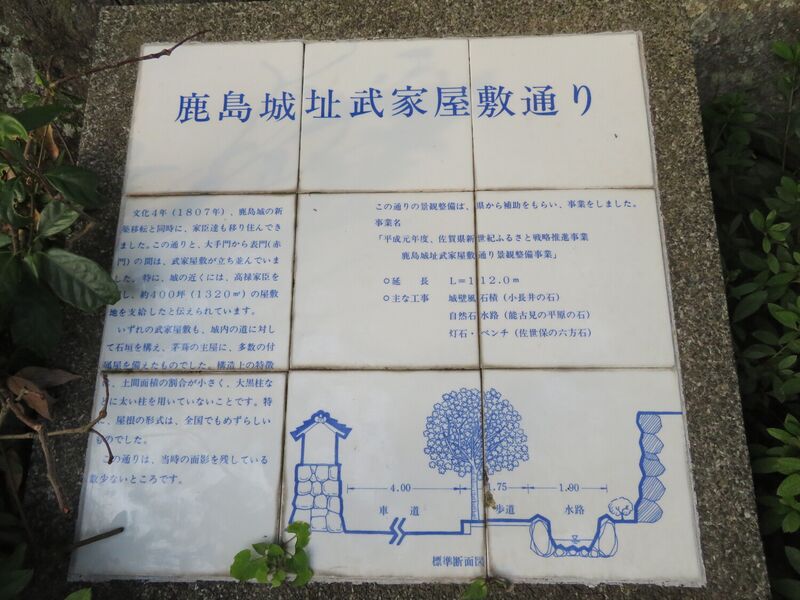 鹿島城址武家屋敷通り
文化4年(1807年)、鹿島城の新
築移転と同時に、家臣達も移り住んでき
ました。この通りと、大手門から表門(赤
門)の間は、武家屋敷が立ち並んでいま
した。特に、城の近くには、高禄家臣を
し、約400坪(1320㎡)の屋敷
地を支給したと伝えられています。
いずれの武家屋敷も、城内の道に対し
て石垣を構え、茅葺の主屋に、多数の付
属屋を備えたものでした。構造上の特徴
は、土間面積の割合が小さく、大黒柱な
どに太い柱を用いていないことです。特
に、屋根の形式は、全国でもめずらしい
ものでした。
この通りは、当時の面影を残している
数少ないところです。
この通りの景観整備は、県から補助をもらい、事業をしました。
事業名
「平成元年度、佐賀県新世紀ふるさと戦略推進事業
鹿島城址武家屋敷通り景観整備事業」
○延 長 L=112.0m
○主な工事 城壁風石積(小長井の石)
自然石水路(能古見の平原の石)
灯石・ベンチ(佐世保の六方石)
4.00 1.75 1.90
車道 歩道 水路
標準断面図